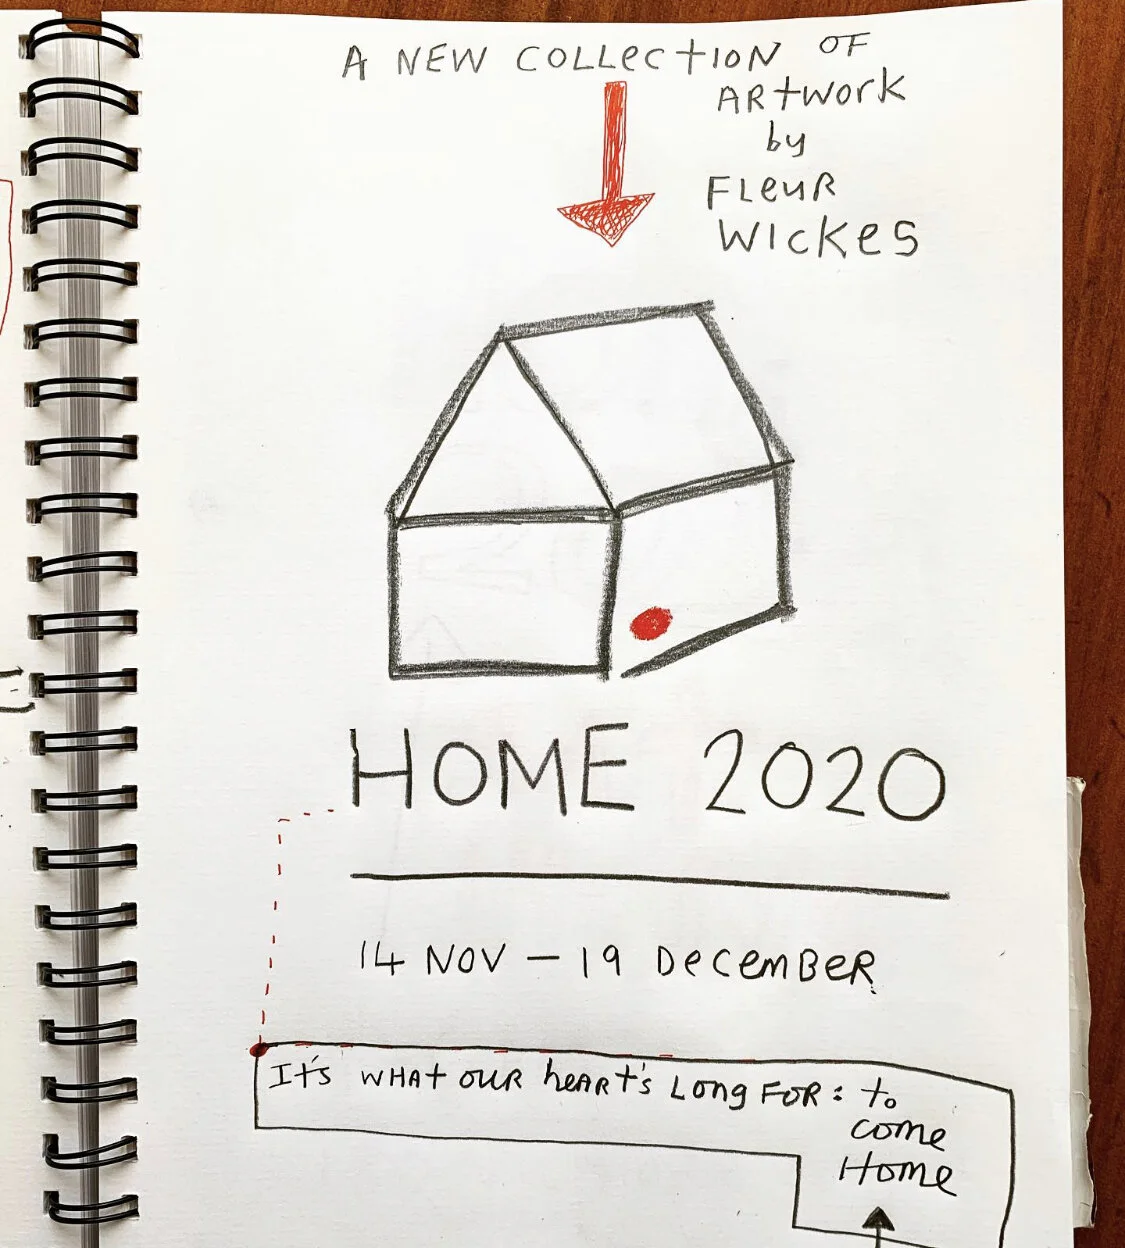 A NEW COLLectION OF
ARtWORK
by
FLeuR
WICKES
HOME 2020
14 NOV — 19 DeCeMBeR
It's WHAt OUR heARt's LONg FOR: to
come
Home